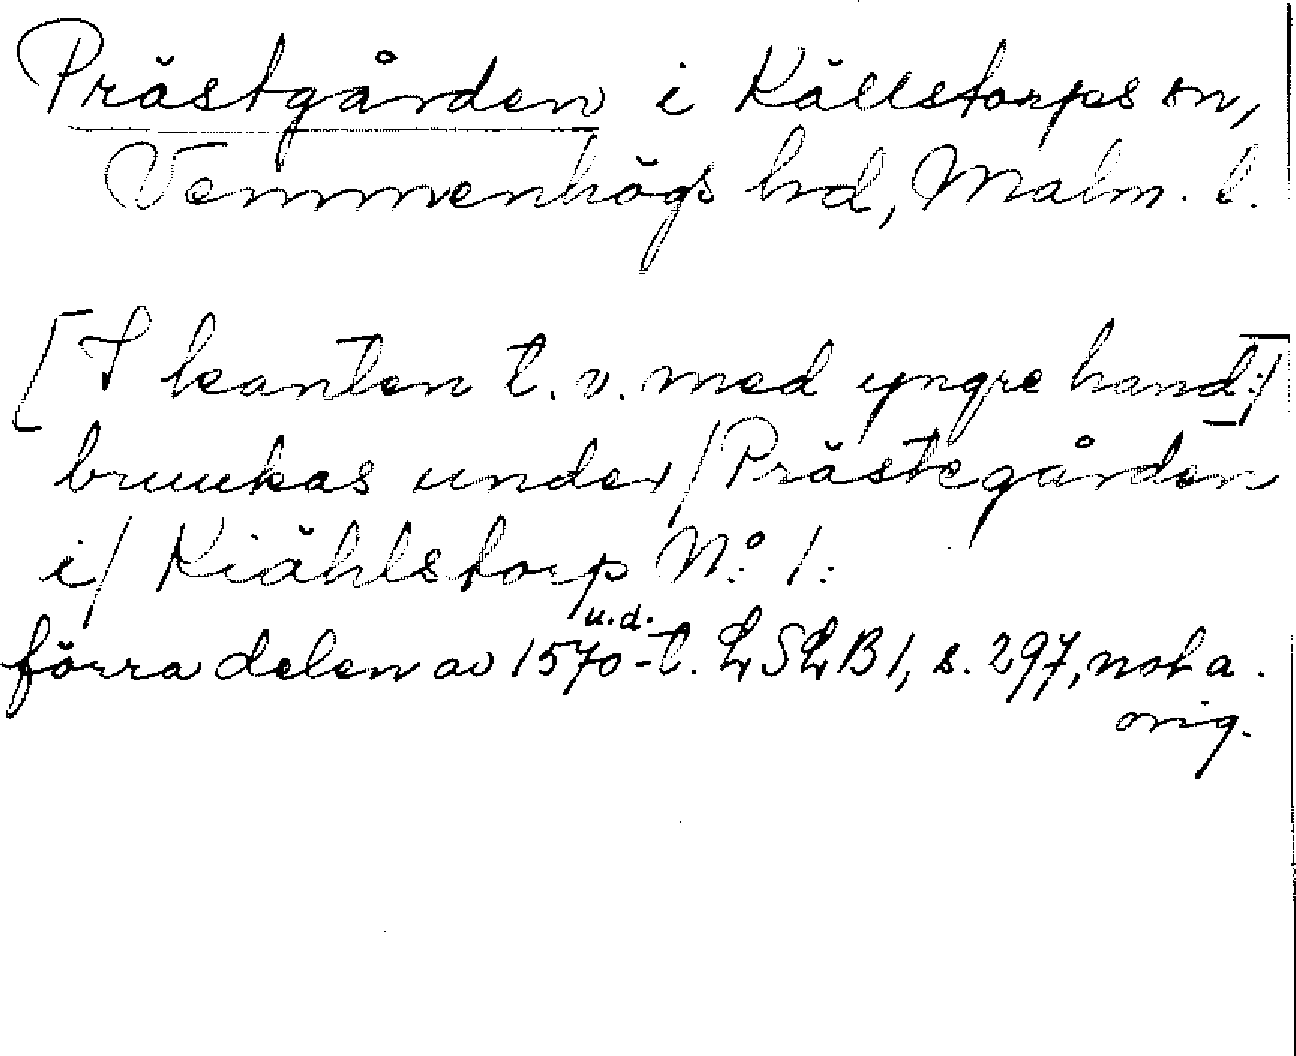 Prästgården i Källstorps sn,
Vemmenhögs hd, Malm. l.
[I kanten t.v. med yngre hand:]
bruukas under/Prästegården
i/ Kiählstorp No: 1:
u.d.
förra delen av 1570-t. LSLB 1, s. 297, not a.
orig.